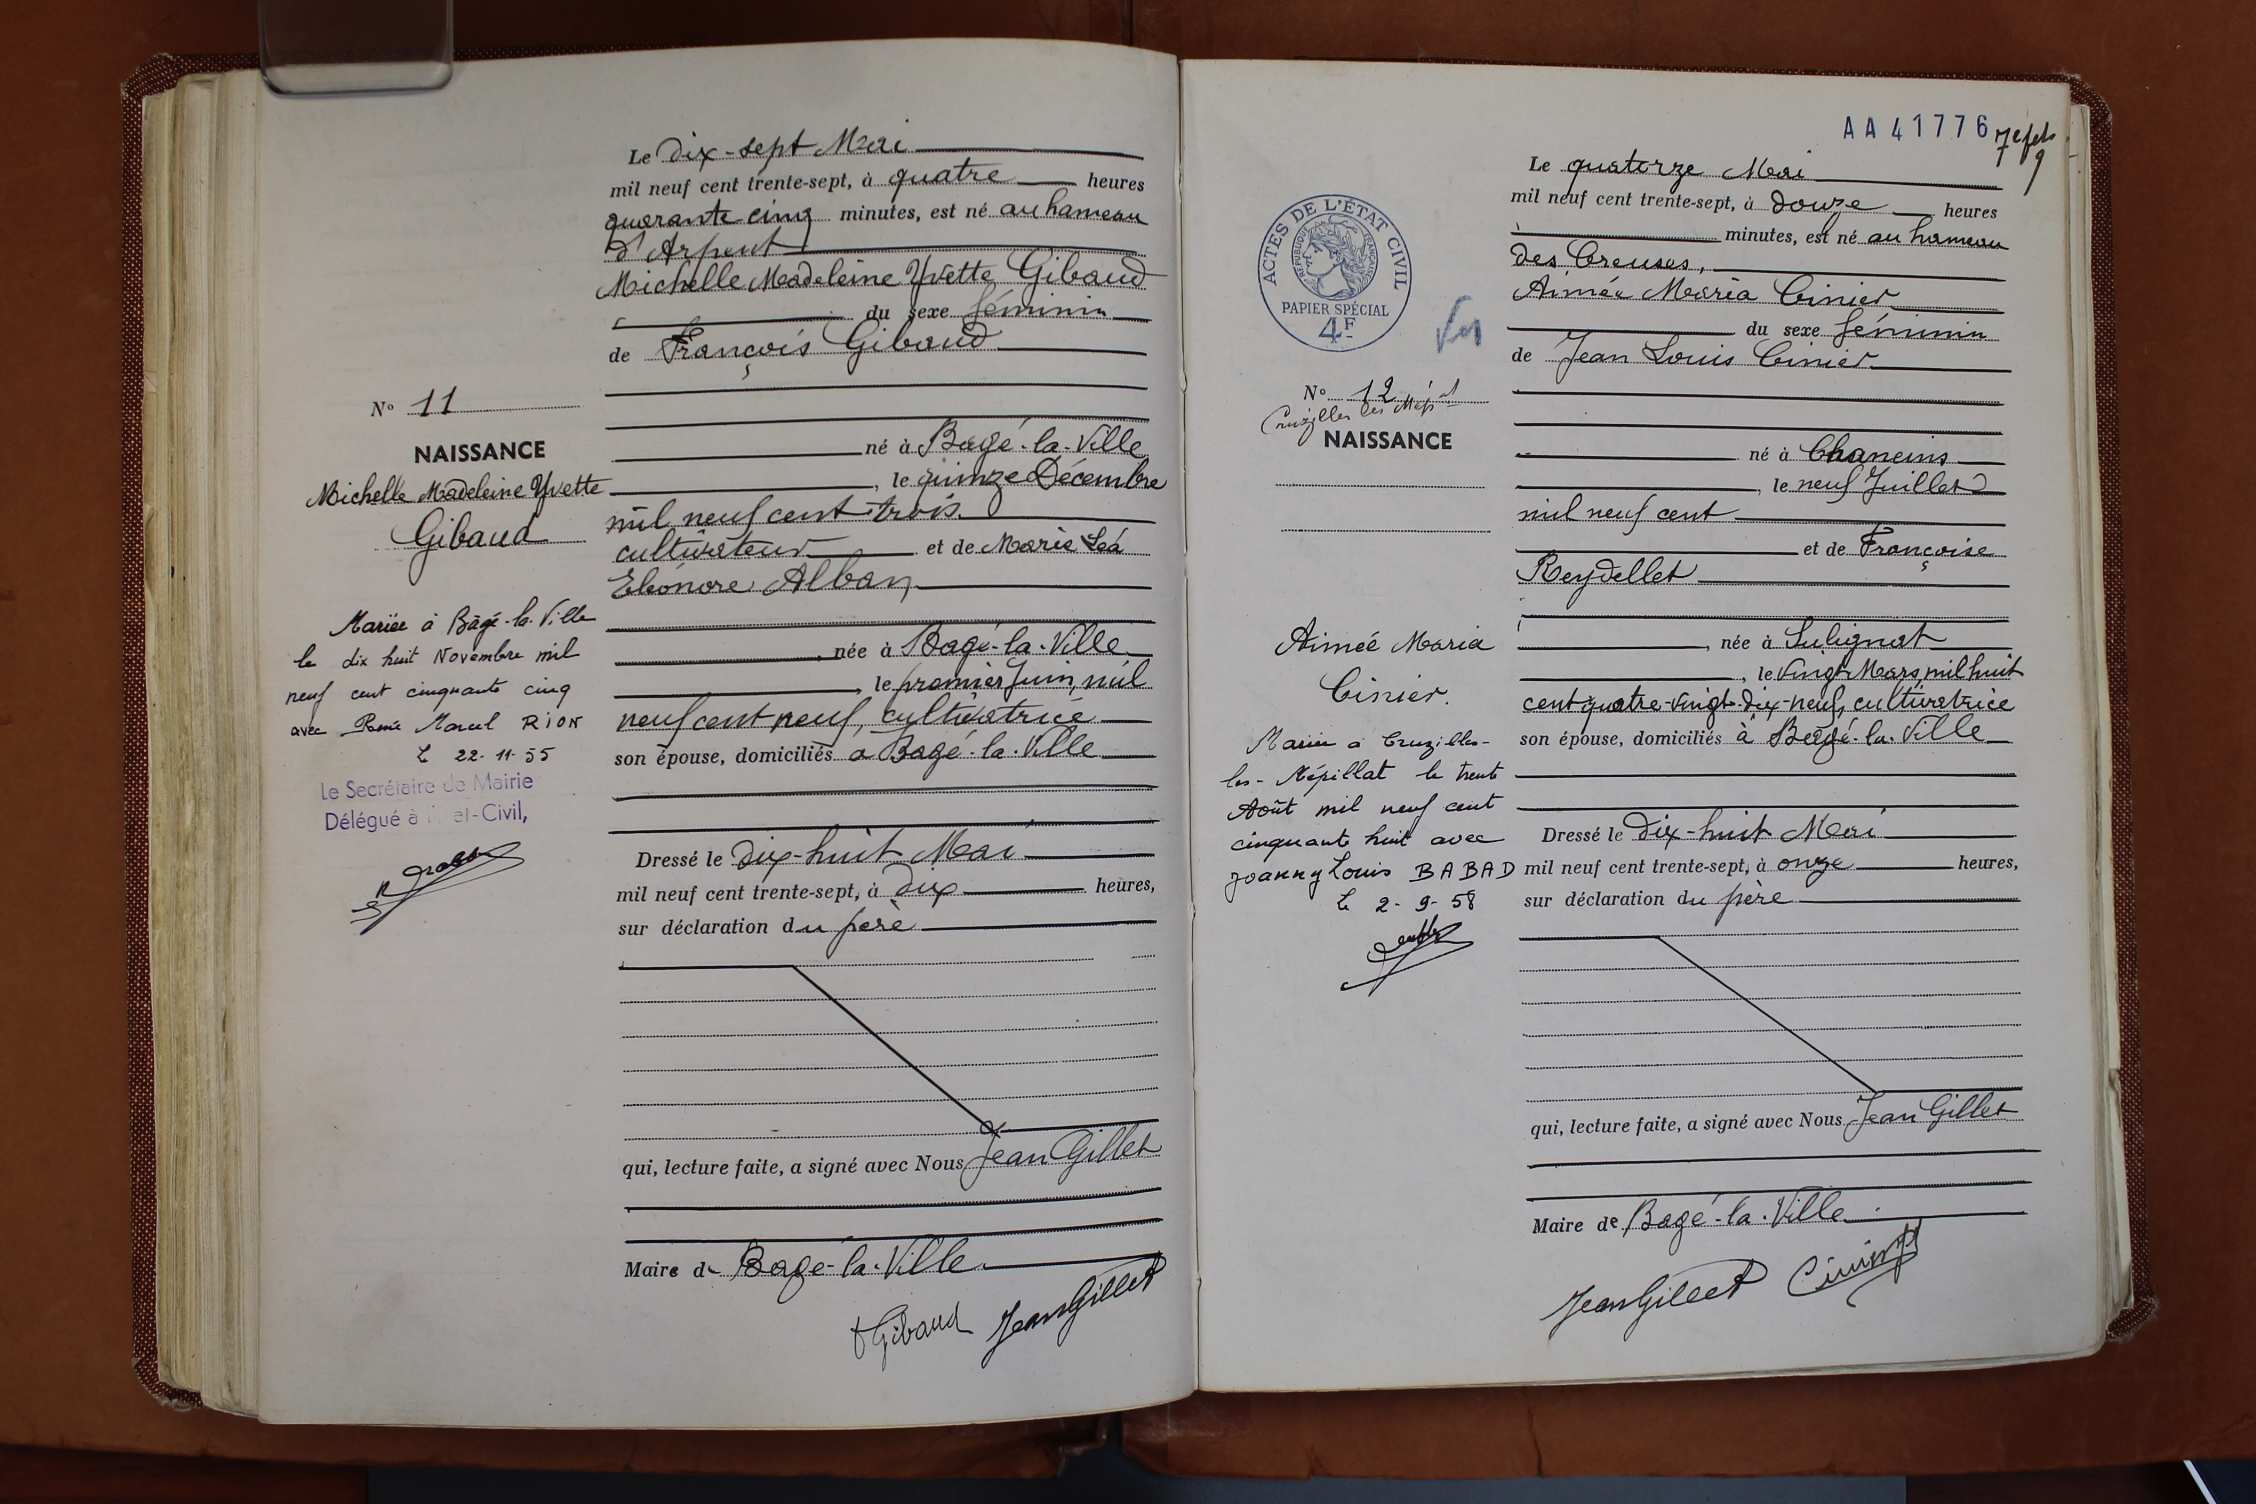 Le dix-sept Mai
mil neuf cent trente-sept, à quatre heures
quarante cinq minutes, est né au hameau
d'Arpent
Michelle Madeleine Yvette Gibaud
du sexe féminin
de François Gibaud
né à Bagé-la-Ville
, le quinze Décembre
mil neuf cent trois
cultivateur et de Marie Léa
Eléonore Alban
, née à Bagé-la-Ville
, le premier Juin, mil
neuf cent neuf, cultivatrice
son épouse, domiciliés à Bagé-la-Ville
Dressé le dix-huit Mai
mil neuf cent trente-sept, à dix heures,
sur déclaration du père
qui, lecture faite, a signé avec Nous Jean Gillet
Maire de Bagé-la-Ville
Gibaud Jean Gillet
No 11
NAISSANCE
Michelle Madeleine Yvette
Gibaud
Mariée à Bâgé-la-Ville
le dix huit Novembre mil
neuf cent cinquante cinq
avec René Marcel RION
Le 22-11-55
Le Secrétaire de Mairie
Délégué à l'Etat-Civil,
AA 41776
ACTES DE L'ÉTAT CIVIL
RÉPUBLIQUE FRANÇAISE
PAPIER SPÉCIAL
4F
No 12
Cruzilles les Mép.
NAISSANCE
Aimée Maria
Cinier.
Mariée à Cruzilles-
les-Mépillat le trente
Août mil neuf cent
cinquante huit avec
Joanny Louis BABAD
Le 2-9-58
Le quatorze Mai
mil neuf cent trente-sept, à douze heures
minutes, est né au hameau
des Creuses,
Aimée Maria Cinier
du sexe féminin
de Jean Louis Cinier
né à Chaneins
, le neuf Juillet
mil neuf cent
et de Françoise
Reydellet
, née à Sulignat
, le vingt Mars, mil huit
cent quatre-vingt-dix-neuf, cultivatrice
son épouse, domiciliés à Bâgé-la-Ville
Dressé le dix-huit Mai
mil neuf cent trente-sept, à onze heures,
sur déclaration du père
qui, lecture faite, a signé avec Nous Jean Gillet
Maire de Bagé-la-Ville
Jean Gillet Cinier